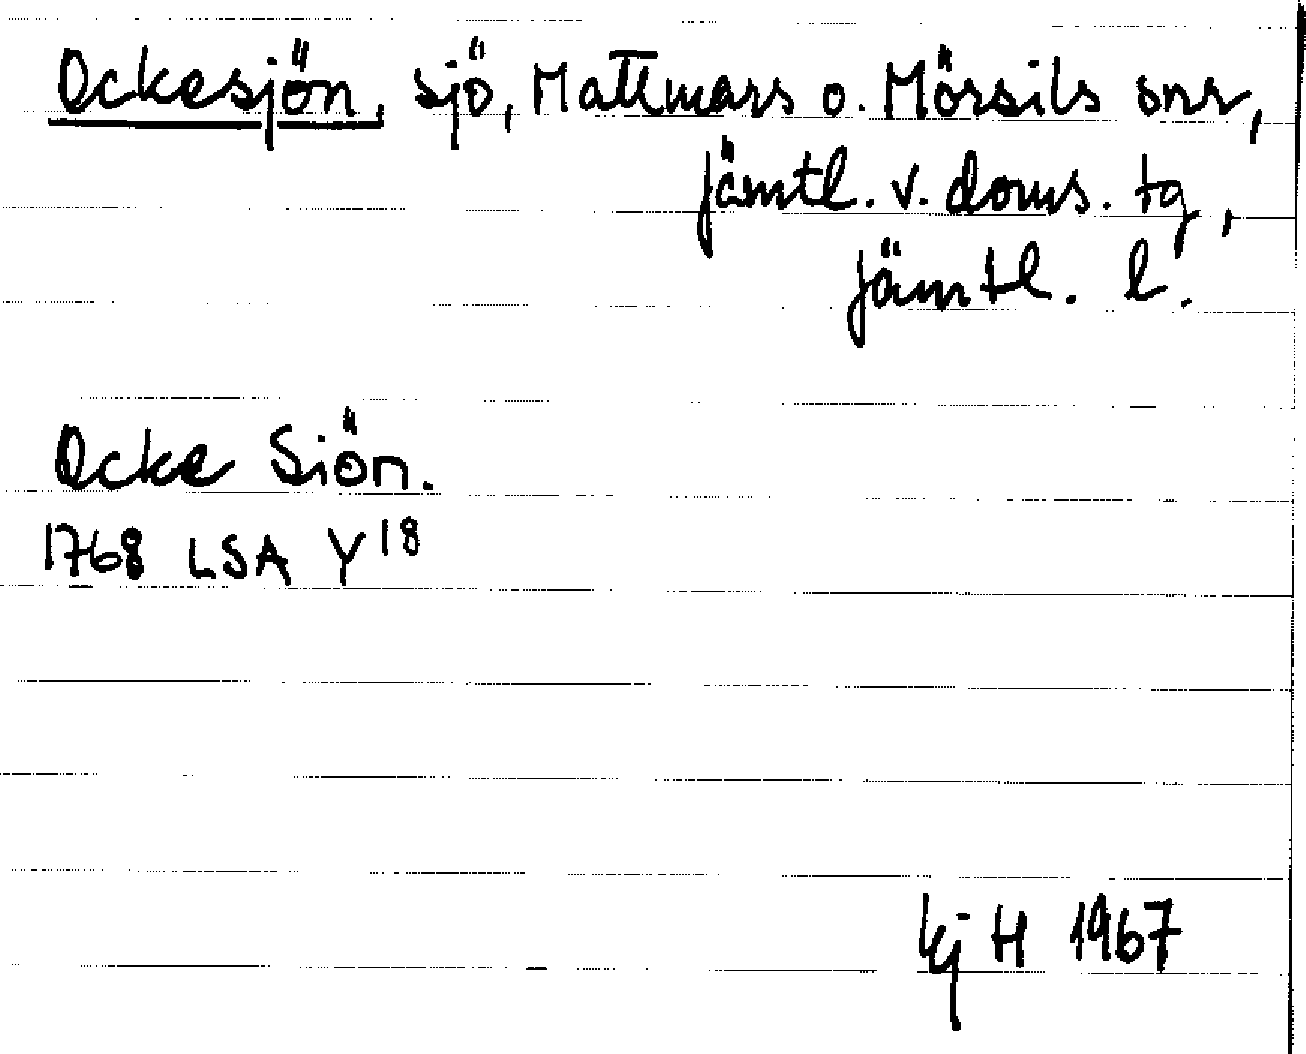 Ockesjön, sjö, Mattmars o. Mörsils snr,
Jämtl. v. doms. tg,
Jämtl. l.
Ocke Siön.
1768 LSA Y18
Kj H 1967